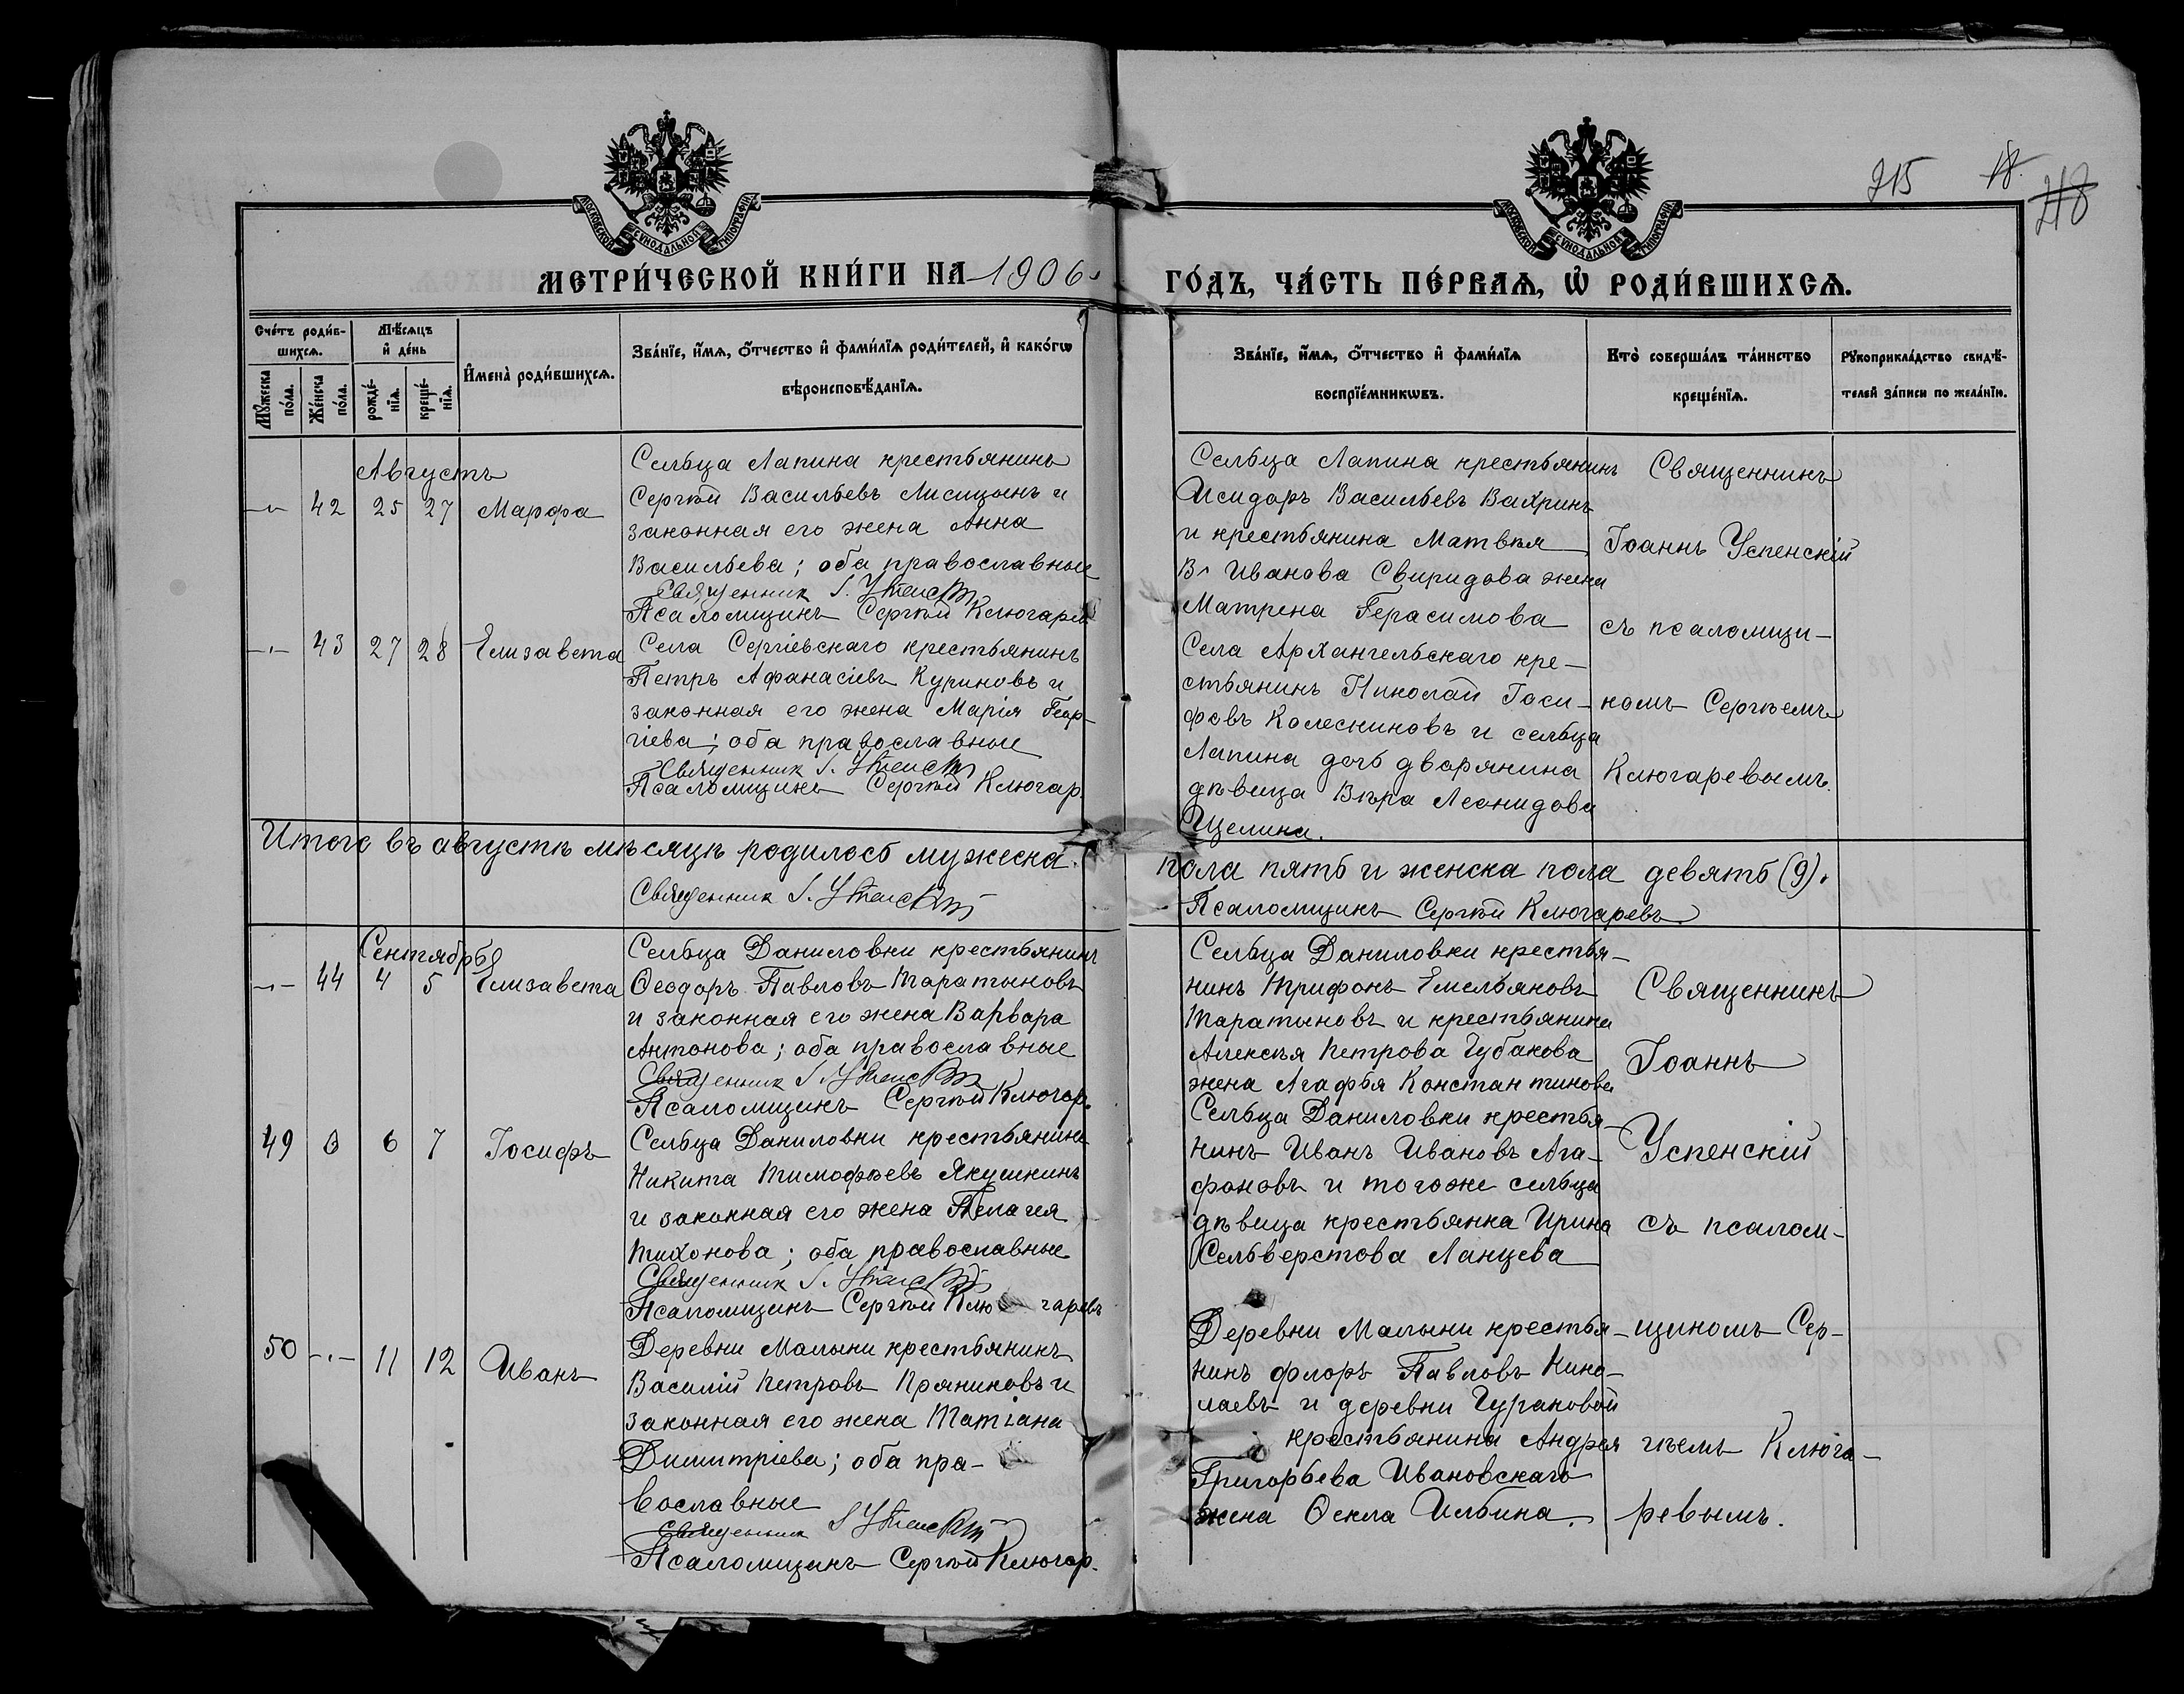 215 18. 218
МОСКОВСКОЙ СѴНОДАЛЬНОЙ ТИПОГРАФІИ
МОСКОВСКОЙ СѴНОДАЛЬНОЙ ТИПОГРАФІИ
МЕТРИ́ЧЕСКОЙ КНИ́ГИ НА 1906
ГО́ДЪ, ЧА́СТЬ ПЕ́РВАѦ, Ѽ РОДИ́ВШИХСѦ.
Сче́тъ роди́в-
шихсѧ.
Мѣ́сѧцъ
и҆ де́нь
Мꙋ́жеска
по́ла.
Же́нска
по́ла.
рожде́-
нїѧ.
креще́-
нїѧ.
И҆мена̀ роди́вшихсѧ.
Зва́нїе, и҆́мѧ, о҆́тчество и҆ фами́лїѧ роди́телей, и҆ како́гѡ
вѣроисповѣ́данїѧ.
Зва́нїе, и҆́мѧ, о҆́тчество и҆ фами́лїѧ
воспрїе́мникѡвъ.
Кто̀ соверша́лъ та́инство
креще́нїѧ.
Рꙋкоприкла́дство свидѣ́-
телей за́писи по жела́нїю.
Августъ
-"- 42 25 27 Марфа
Сельца Лапина крестьянинъ
Сергѣй Васильевъ Лисицынъ и
законная его жена Анна
Васильева; оба православные
Священник І. Успенскій
Псаломщикъ Сергѣй Ключарев
Сельца Лапина крестьянинъ
Исидоръ Васильевъ Вахринъ
и крестьянина Матвѣя
Иванова Свиридова жена
Матрена Герасимова
Священникъ
Іоаннъ Успенскій
съ псаломщи-
комъ Сергѣемъ
Ключаревымъ.
-"- 43 27 28 Елизавета
Села Сергіевскаго крестьянинъ
Петръ Афанасіевъ Куриковъ и
законная его жена Марія Геор-
гіева; оба православные
Священник І. Успенскій
Псаломщикъ Сергѣй Ключар.
Села Архангельскаго кре-
стьянинъ Николай Іоси-
фовъ Колесниковъ и сельца
Лапина дочь дворянина
дѣвица Вѣра Леонидова
Щелина.
Итого въ августѣ мѣсяцѣ родилось мужеска
пола пять и женска пола девять (9).
Священник І. Успенскій
Псаломщикъ Сергѣй Ключаревъ
Сентябрь
-"- 44 4 5 Елизавета
Сельца Даниловки крестьянинъ
Ѳеодоръ Павловъ Таратыновъ
и законная его жена Варвара
Антонова; оба православные
Священник І. Успенскій
Псаломщикъ Сергѣй Ключар.
Сельца Даниловки крестья-
нинъ Трифонъ Емельяновъ
Таратыновъ и крестьянина
Алексѣя Петрова Губакова
жена Агафья Константинова
Священникъ
Іоаннъ
Успенскій
съ псалом-
щикомъ Сер-
гѣемъ Ключа-
ревымъ.
49 6 7 Іосифъ
Сельца Даниловки крестьянинъ
Никита Тимофѣевъ Якушкинъ
и законная его жена Пелагея
Тихонова; оба православные
Священник І. Успенскій
Псаломщикъ Сергѣй Ключаревъ
Сельца Даниловки крестья-
нинъ Иванъ Ивановъ Ага-
фоновъ и того же сельца
дѣвица крестьянка Ирина
Сельверстова Ланцева
50 -"- 11 12 Иванъ
Деревни Малыни крестьянинъ
Василій Петровъ Пряниковъ и
законная его жена Татіана
Димитріева; оба пра-
вославные
Священник І. Успенскій
Псаломщикъ Сергѣй Ключар.
Деревни Малыни крестья-
нинъ Флоръ Павловъ Нико-
лаевъ и деревни Гураковой
крестьянина Андрея
Григорьева Ивановскаго
жена Ѳекла Ильина.